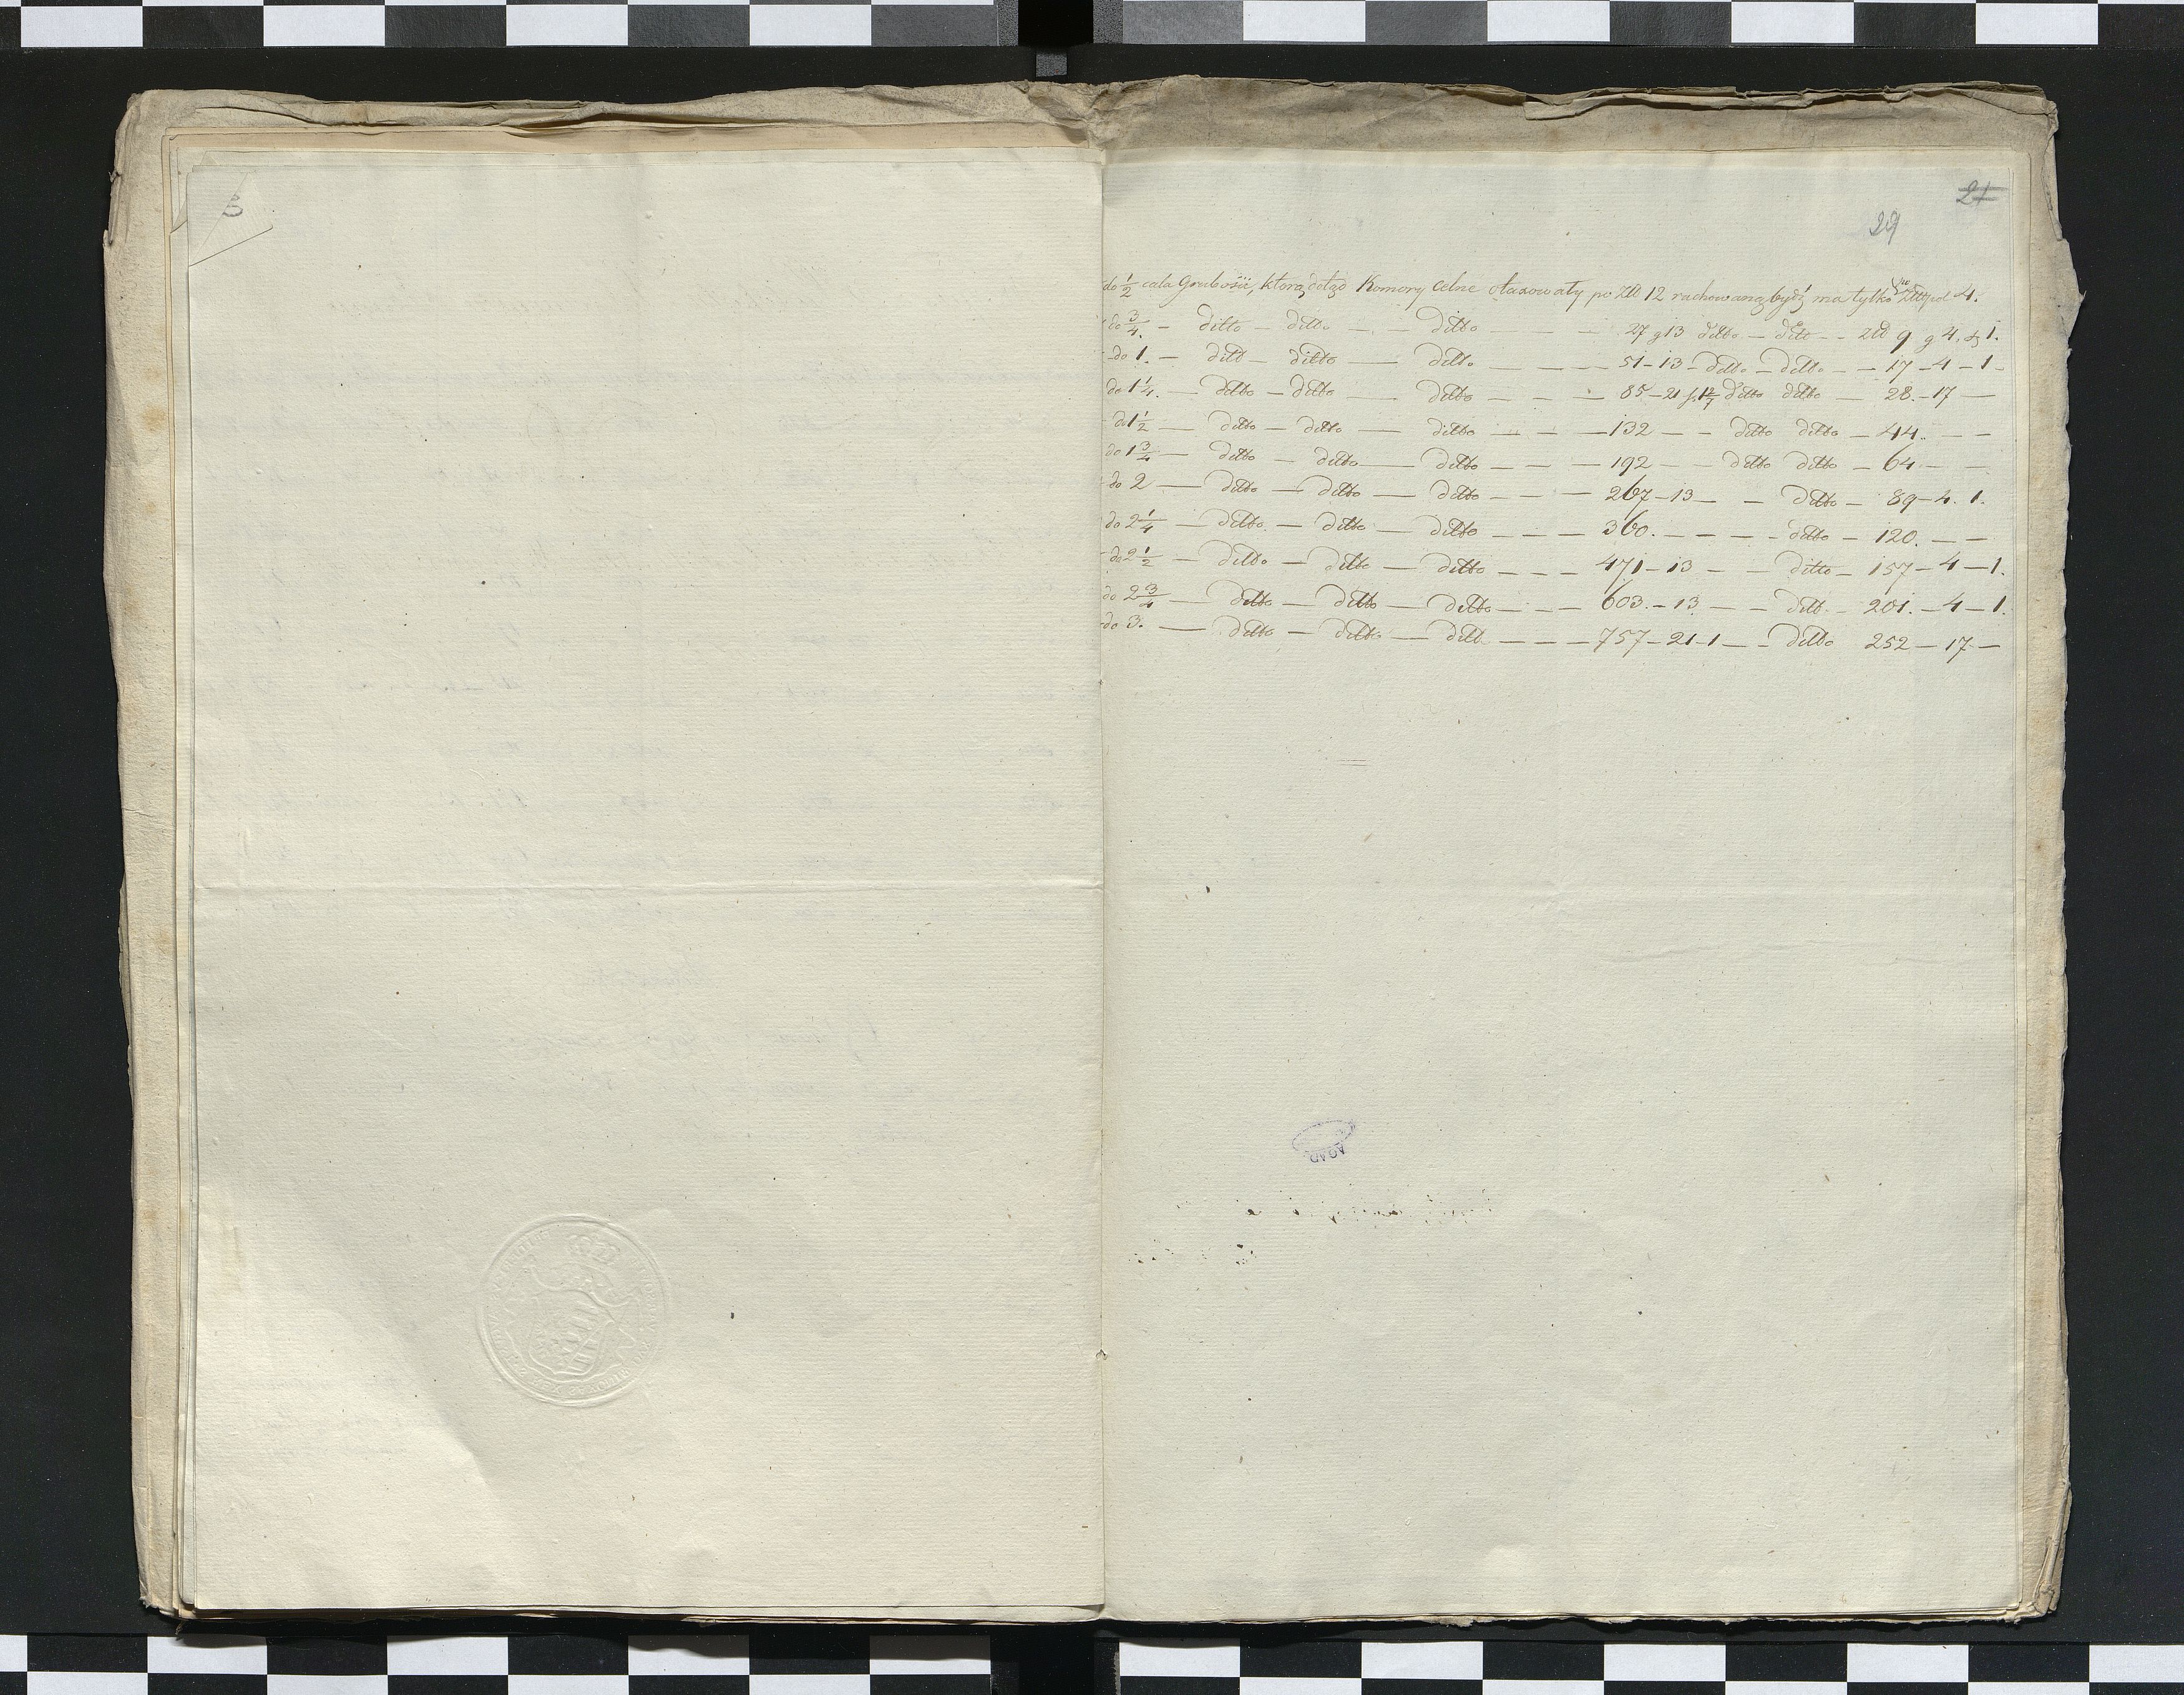 21
29
do 1/2 cala Grubości, którą dotąd Komory Celne otaxowały po Złł 12 rachowaną bydź ma tylko po 4.
do 3/4. – ditto – ditto – – ditto – – – 27 g 13 ditto – ditt – – złł 9 g 4. s 1.
do 1. – ditt – ditto — ditto — — — 51–13– ditto – ditto – – 17–4–1–
do 1 1/4. — ditto – ditto — ditto — — — 85–21 ditto ditto — 28.–17 —
do 1 1/2 — ditto – ditto — ditto — — — 132 — – ditto ditto – 44. – –
do 1 3/4 — ditto – ditto — ditto – – — 192 – – ditto ditto – 64 – –
do 2 — ditto — ditto — ditto – – — 267–13– – ditto – 89–4. 1.
do 2 1/4 – ditto. – ditto — ditto — – — 360. – – – – ditto – 120. – –
do 2 1/2 – ditto – ditto — ditto – – — 471–13 – – ditto – 157–4–1.
do 2 3/4 — ditto — ditto — ditto – – – 603.–13 — – ditt. – 201.–4–1.
do 3. — ditto – ditto — ditt — – — 757–21–1 – – ditto 252–17–
AGAD